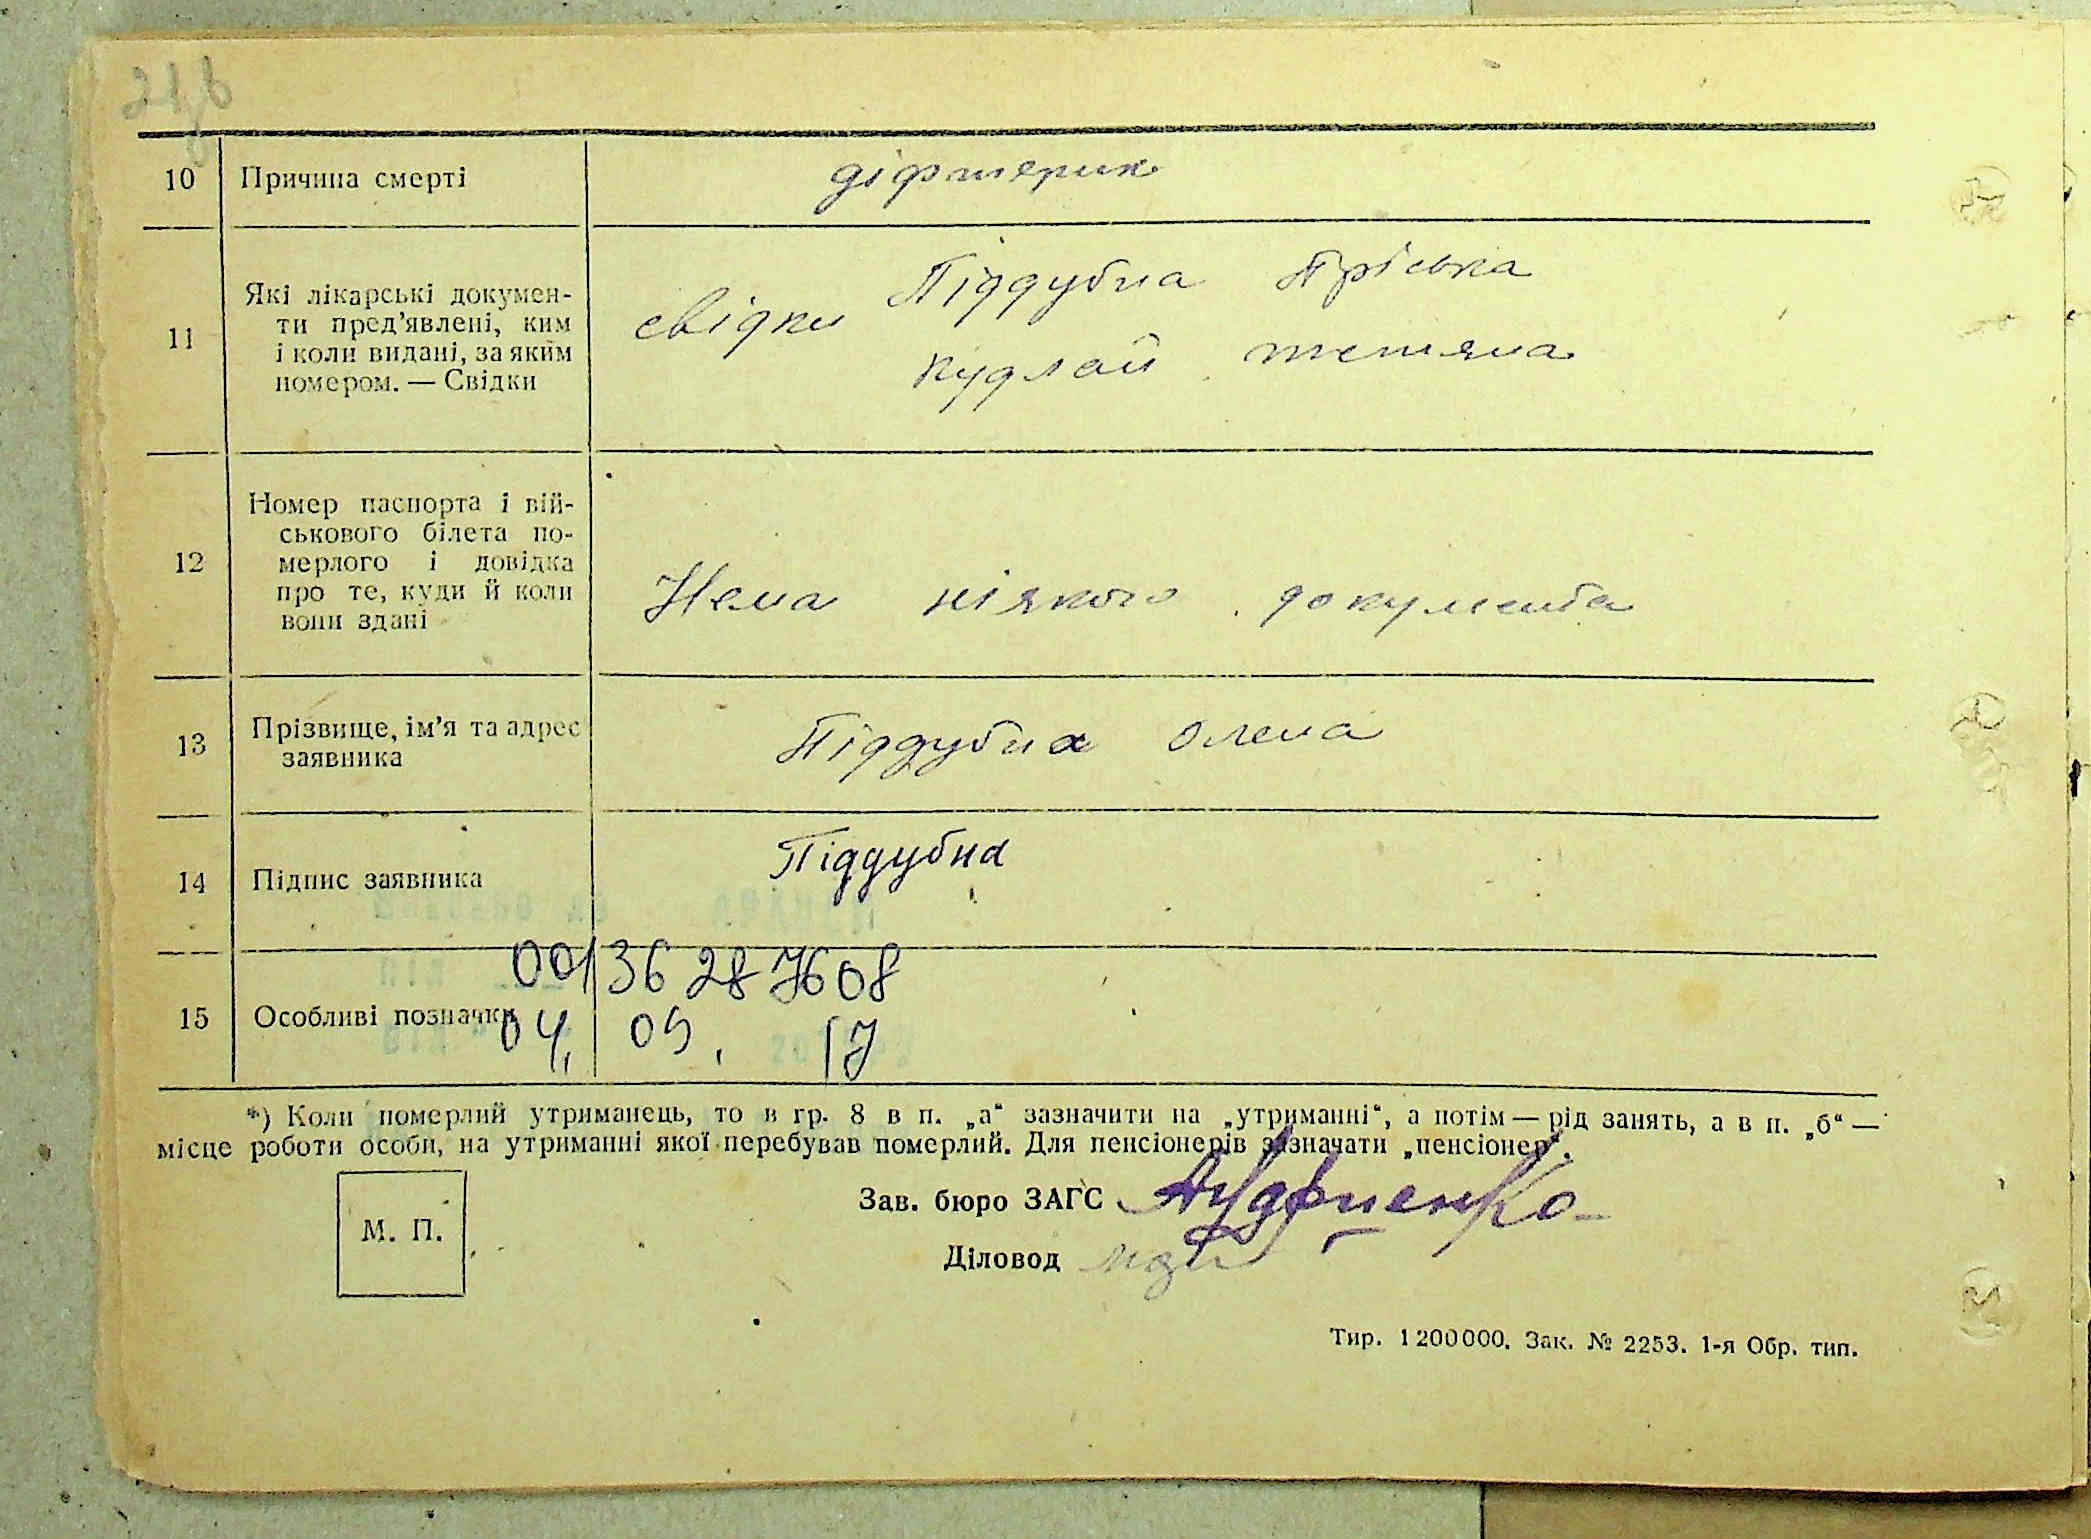 10 Причина смерті діфтерик
11 Які лікарські докумен-
ти пред'явлені, ким
і коли видані, за яким
номером. — Свідки
свідки Піддубна Пріська
Кудлай тетяна
12 Номер паспорта і вій-
ськового білета по-
мерлого і довідка
про те, куди й коли
вони здані
Нема ніякого документа
13 Прізвище, ім'я та адрес
заявника
Піддубна Олена
14 Підпис заявника Піддубна
00136287608
15 Особливі позначки
04. 09. 17
*) Коли померлий утриманець, то в гр. 8 в п. „а“ зазначити на „утриманні“, а потім — рід занять, а в п. „б“ —
місце роботи особи, на утриманні якої перебував померлий. Для пенсіонерів зазначати „пенсіонер“.
Зав. бюро ЗАГС
М. П.
Діловод
Тир. 1 200 000. Зак. № 2253. 1-я Обр. тип.